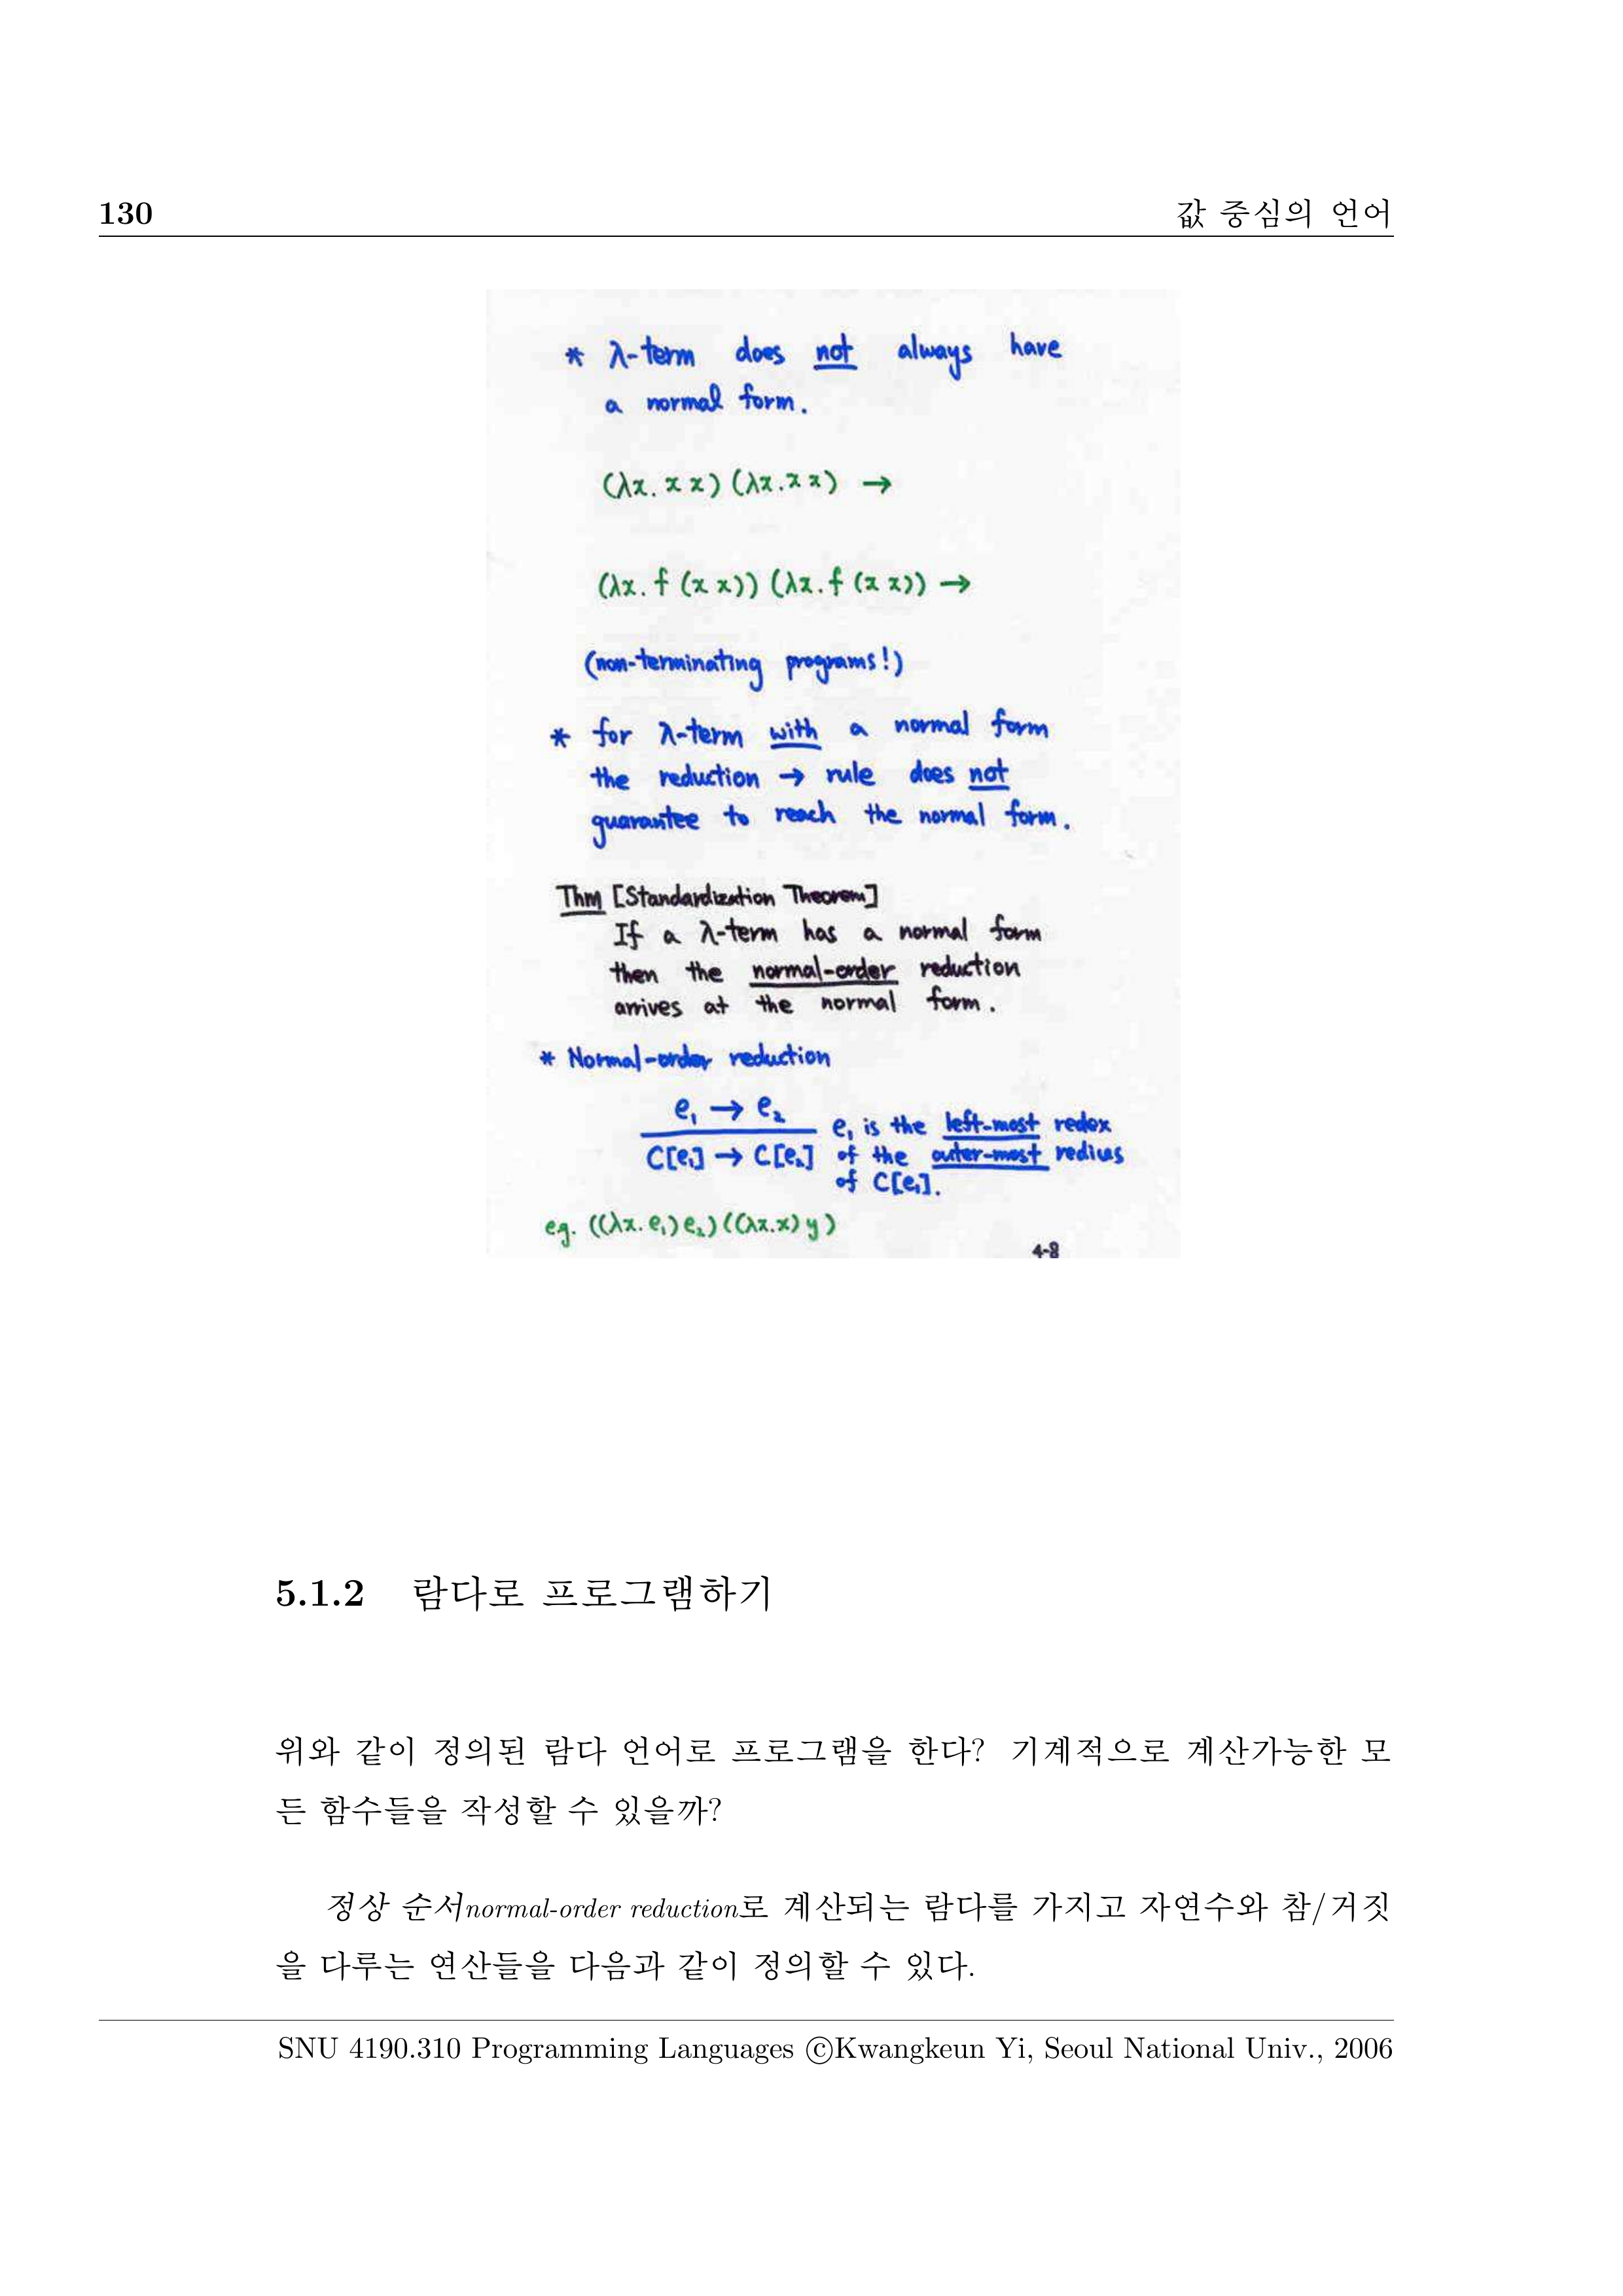 130 값 중심의 언어
* λ-term does not always have
a normal form.
(λx. x x) (λx. x x) →
(λx. f (x x)) (λx. f (x x)) →
(non-terminating programs!)
* for λ-term with a normal form
the reduction → rule does not
guarantee to reach the normal form.
Thm [Standardization Theorem]
If a λ-term has a normal form
then the normal-order reduction
arrives at the normal form.
* Normal-order reduction
e₁ → e₂
e₁ is the left-most redex
C[e₁] → C[e₂] of the outer-most redices
of C[e₁].
eg. ((λx. e₁) e₂) ((λx.x) y)
4-8
5.1.2 람다로 프로그램하기
위와 같이 정의된 람다 언어로 프로그램을 한다? 기계적으로 계산가능한 모
든 함수들을 작성할 수 있을까?
정상 순서normal-order reduction로 계산되는 람다를 가지고 자연수와 참/거짓
을 다루는 연산들을 다음과 같이 정의할 수 있다.
SNU 4190.310 Programming Languages ©Kwangkeun Yi, Seoul National Univ., 2006